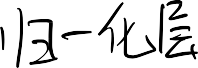 归一化层